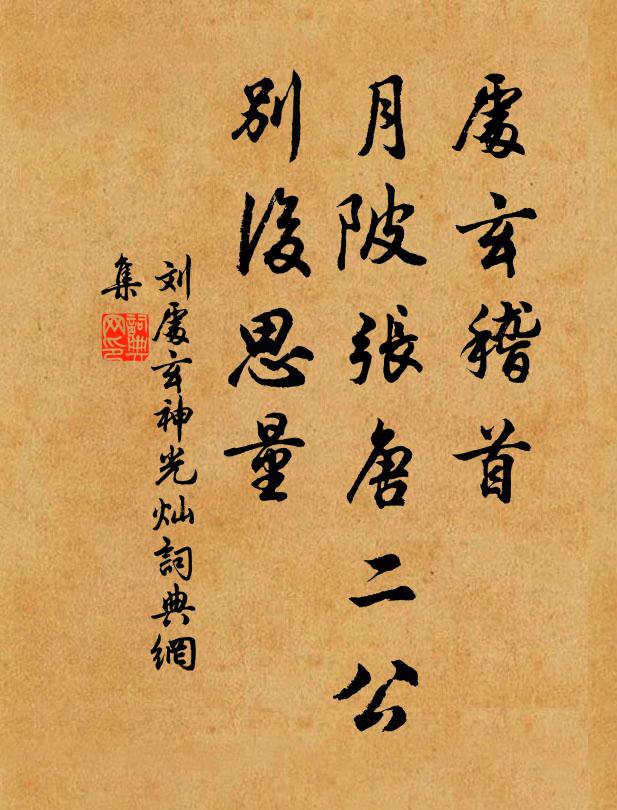 處玄稽首
月陂張唐二公
別後思量
刘處玄神光灿詞典網
集
詞典
网印